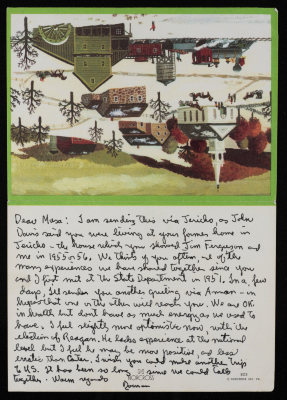 Dear Musa: I am sending this via Jericho, as John
Davis said you were living at your former home in
Jericho - the house which you shared Jim Ferguson and
me in 1955 & 56. We think of you often, & of the
many experiences we have shared together since you
and I first met at the State Department in 1951. In a few
days, I'll send you another greeting via Amman - in
hopes that one or the other will reach you. We are OK
in health but don't have as much energy as we used to
have. I feel slightly more optimistic now, with the
election of Reagan. He lacks experience at the national
level but I feel he may be more positive and less
erratic than Carter. I wish you could make another trip
to US. It has been so long since we could talk
together - Warm regards
NORCROSS